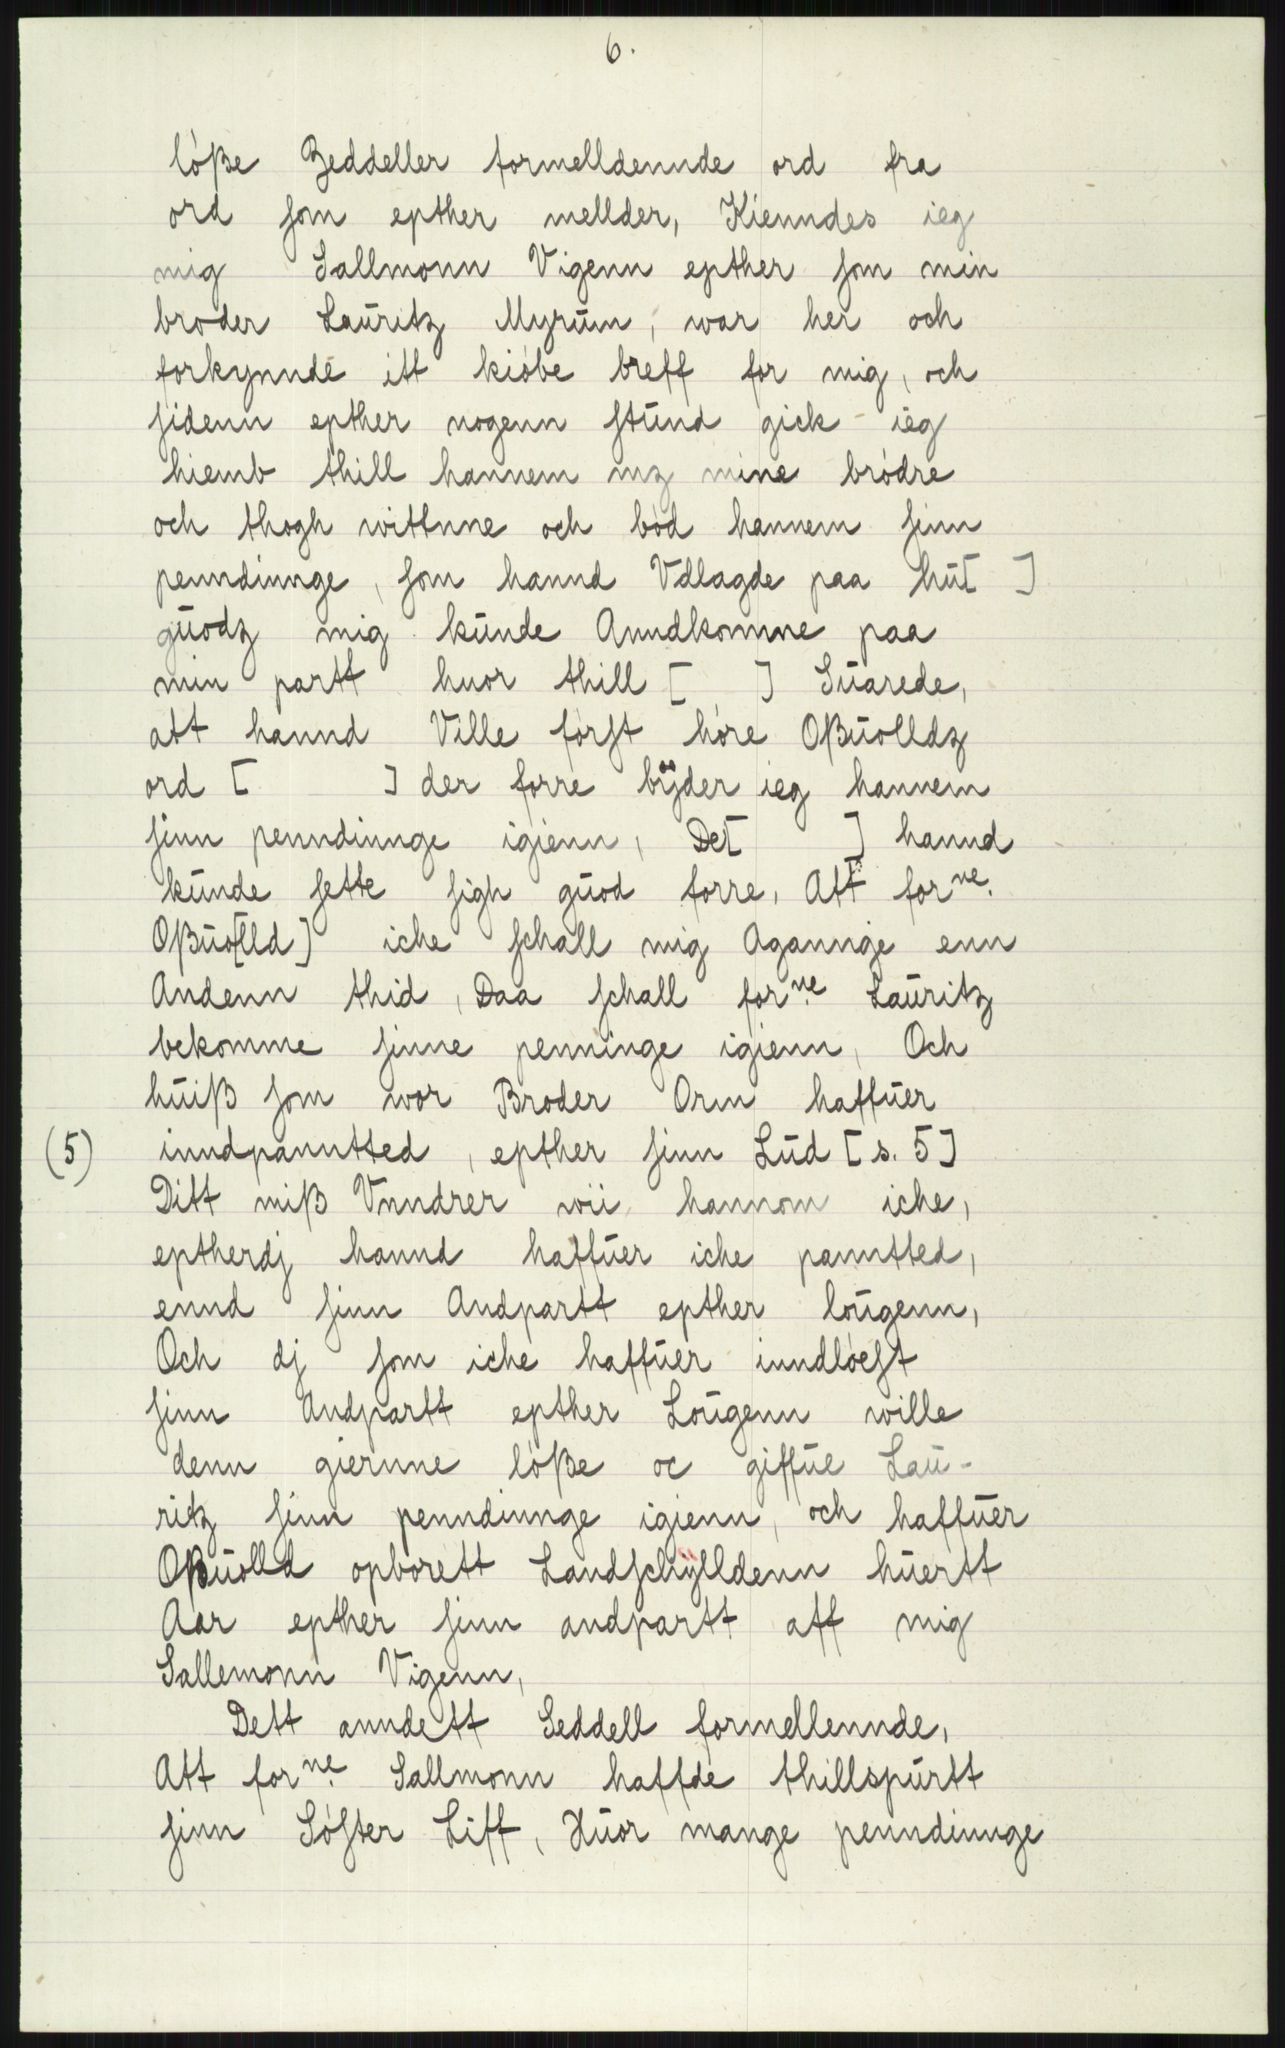 6.
lóße Zeddeller formelldennde ord fra
ord som epther mellder, Kienndes ieg
mig Sallmonn Vigenn epther som min
broder Laūritz Myrūm, war her och
forkynnde itt kióbe breff for mig, och
sidenn epther nogenn stūnd gick ieg
hiemb thill hannem mz mine bródre
och thogh wittnne och bód hannem sinn
penndinnge, som hannd Vdlagde paa hū[ ]
gūodz mig kūnde Anndkomne paa
min partt huor thill [ ] Sūarede,
att hannd Ville fórst hóre Oßūolldz
ord [ ] der forre bÿder ieg hannem
sinn penndinnge igienn, De[ ] hannd
kūnde sette sigh gūod forre, Att forne.
Oßūo[lld] iche schall mig Agannge enn
Andenn thid, Daa schall forne. Laūritz
bekomme sinne penninge igienn, Och
hūiß som wor Broder Orm haffūer
(5) inndpanntted, epther sinn Lūd [s. 5]
Ditt miß Vnndrer wii hannom iche,
eptherdj hannd haffūer iche panntted,
ennd sinn Andpartt epther loūgenn,
Och dj som iche haffūer inndlóest
sinn Andpartt epther Loūgenn wille
denn giernne lóße oc giffūe Laū-
ritz sinn penndinnge igienn, och haffūer
Oßūolld opborett Landschÿlldenn hūertt
Aar epther sinn andpartt aff mig
Sallemonn Vigenn,
Dett anndett Seddell formellennde,
Att forne. Sallmonn haffde thillspūrtt
sinn Sóster Liff, Hūor mange penndinnge